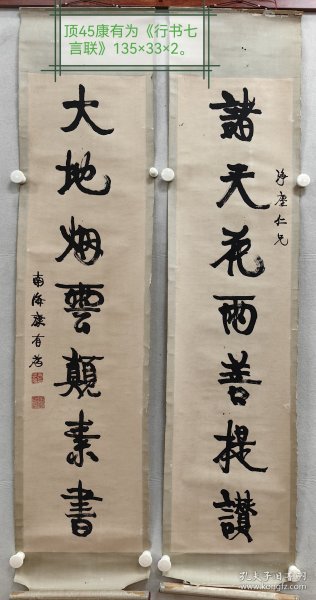 顶45康有为《行书七
言联》135×33×2。
諸天花雨善提讃
净虚仁兄
大地烟雲顛素書
南海康有為
孔夫子旧书网
www.kongfz.com